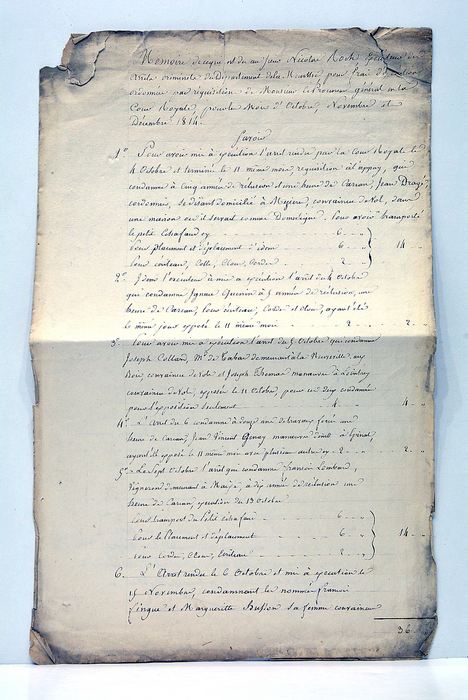 Memoire de ce qui est du au Sieur Nicolas Roch Executeur des
Arrêts criminels du Département de la Meurthe, pour frais d'Execution
ordonnée par réquisition de Monsieur le Procureur général en la
Cour Royale, pour les Mois d'Octobre, Novembre et
Décembre 1814.
Savoir
1° Pour avoir mis à execution l'arrêt rendu par la Cour Royale le
4 Octobre et terminé le 11 même mois, requisition ci appuy, qui
condamne à Cinq années de réclusion et une heure de Carcan, Jean
cordonnier, se disant domicilié à convaincu de Vol, dans
une maison ou il servait comme Domestique. Pour avoir transporté
le petit Echafaud cy 6
Pour placement et déplacement d'idem 6 14
Pour couteau, Colle, Clou, Corde 2
2° Idem l'executeur à mis a execution l'arrêt du 4 Octobre
qui condamne Ignace Guerin à 5 années de réclusion, une
heure de Carcan, Pour couteau, Corde et clou, ayant été
le même jour exposé le 11 même mois 2 2
3° Pour avoir mis a execution l'arrêt du 5 Octobre qui condamne
Joseph Collard, Md de Tabac demeurant à la Neuville, aux
Bois, convaincu de Vole et Joseph Thomas manoeuvre à Leintrey
convaincu de Vol, exposés le 11 Octobre, pour ces deux condamnés
pour l'exposition seulement 4 4
4° L'Arrêt du 6 condamne à douze ans de travaux forcés une
heure de Carcan, Jean Vincent Genay manoeuvre domlié à Epinal,
ayant été exposé le 11 même mois avec plusieurs autres cy 2 2
5° Le Sept Octobre l'arrêt qui condamne françois Lombard,
Vigneron demeurant à à dix années de réclusion une
heure de Carcan, execution du 13 Octobre
Pour transport du Petit échafaud 6
Pour le Placement et déplacement 6 14
Pour Corde, Clou, Ecriteau 2
6. L'Arrêt rendu le 6 Octobre et mis à execution le
15 Novembre, condamnant les nommés françois
Lingue et Marguerite Husson sa femme convaincus
36